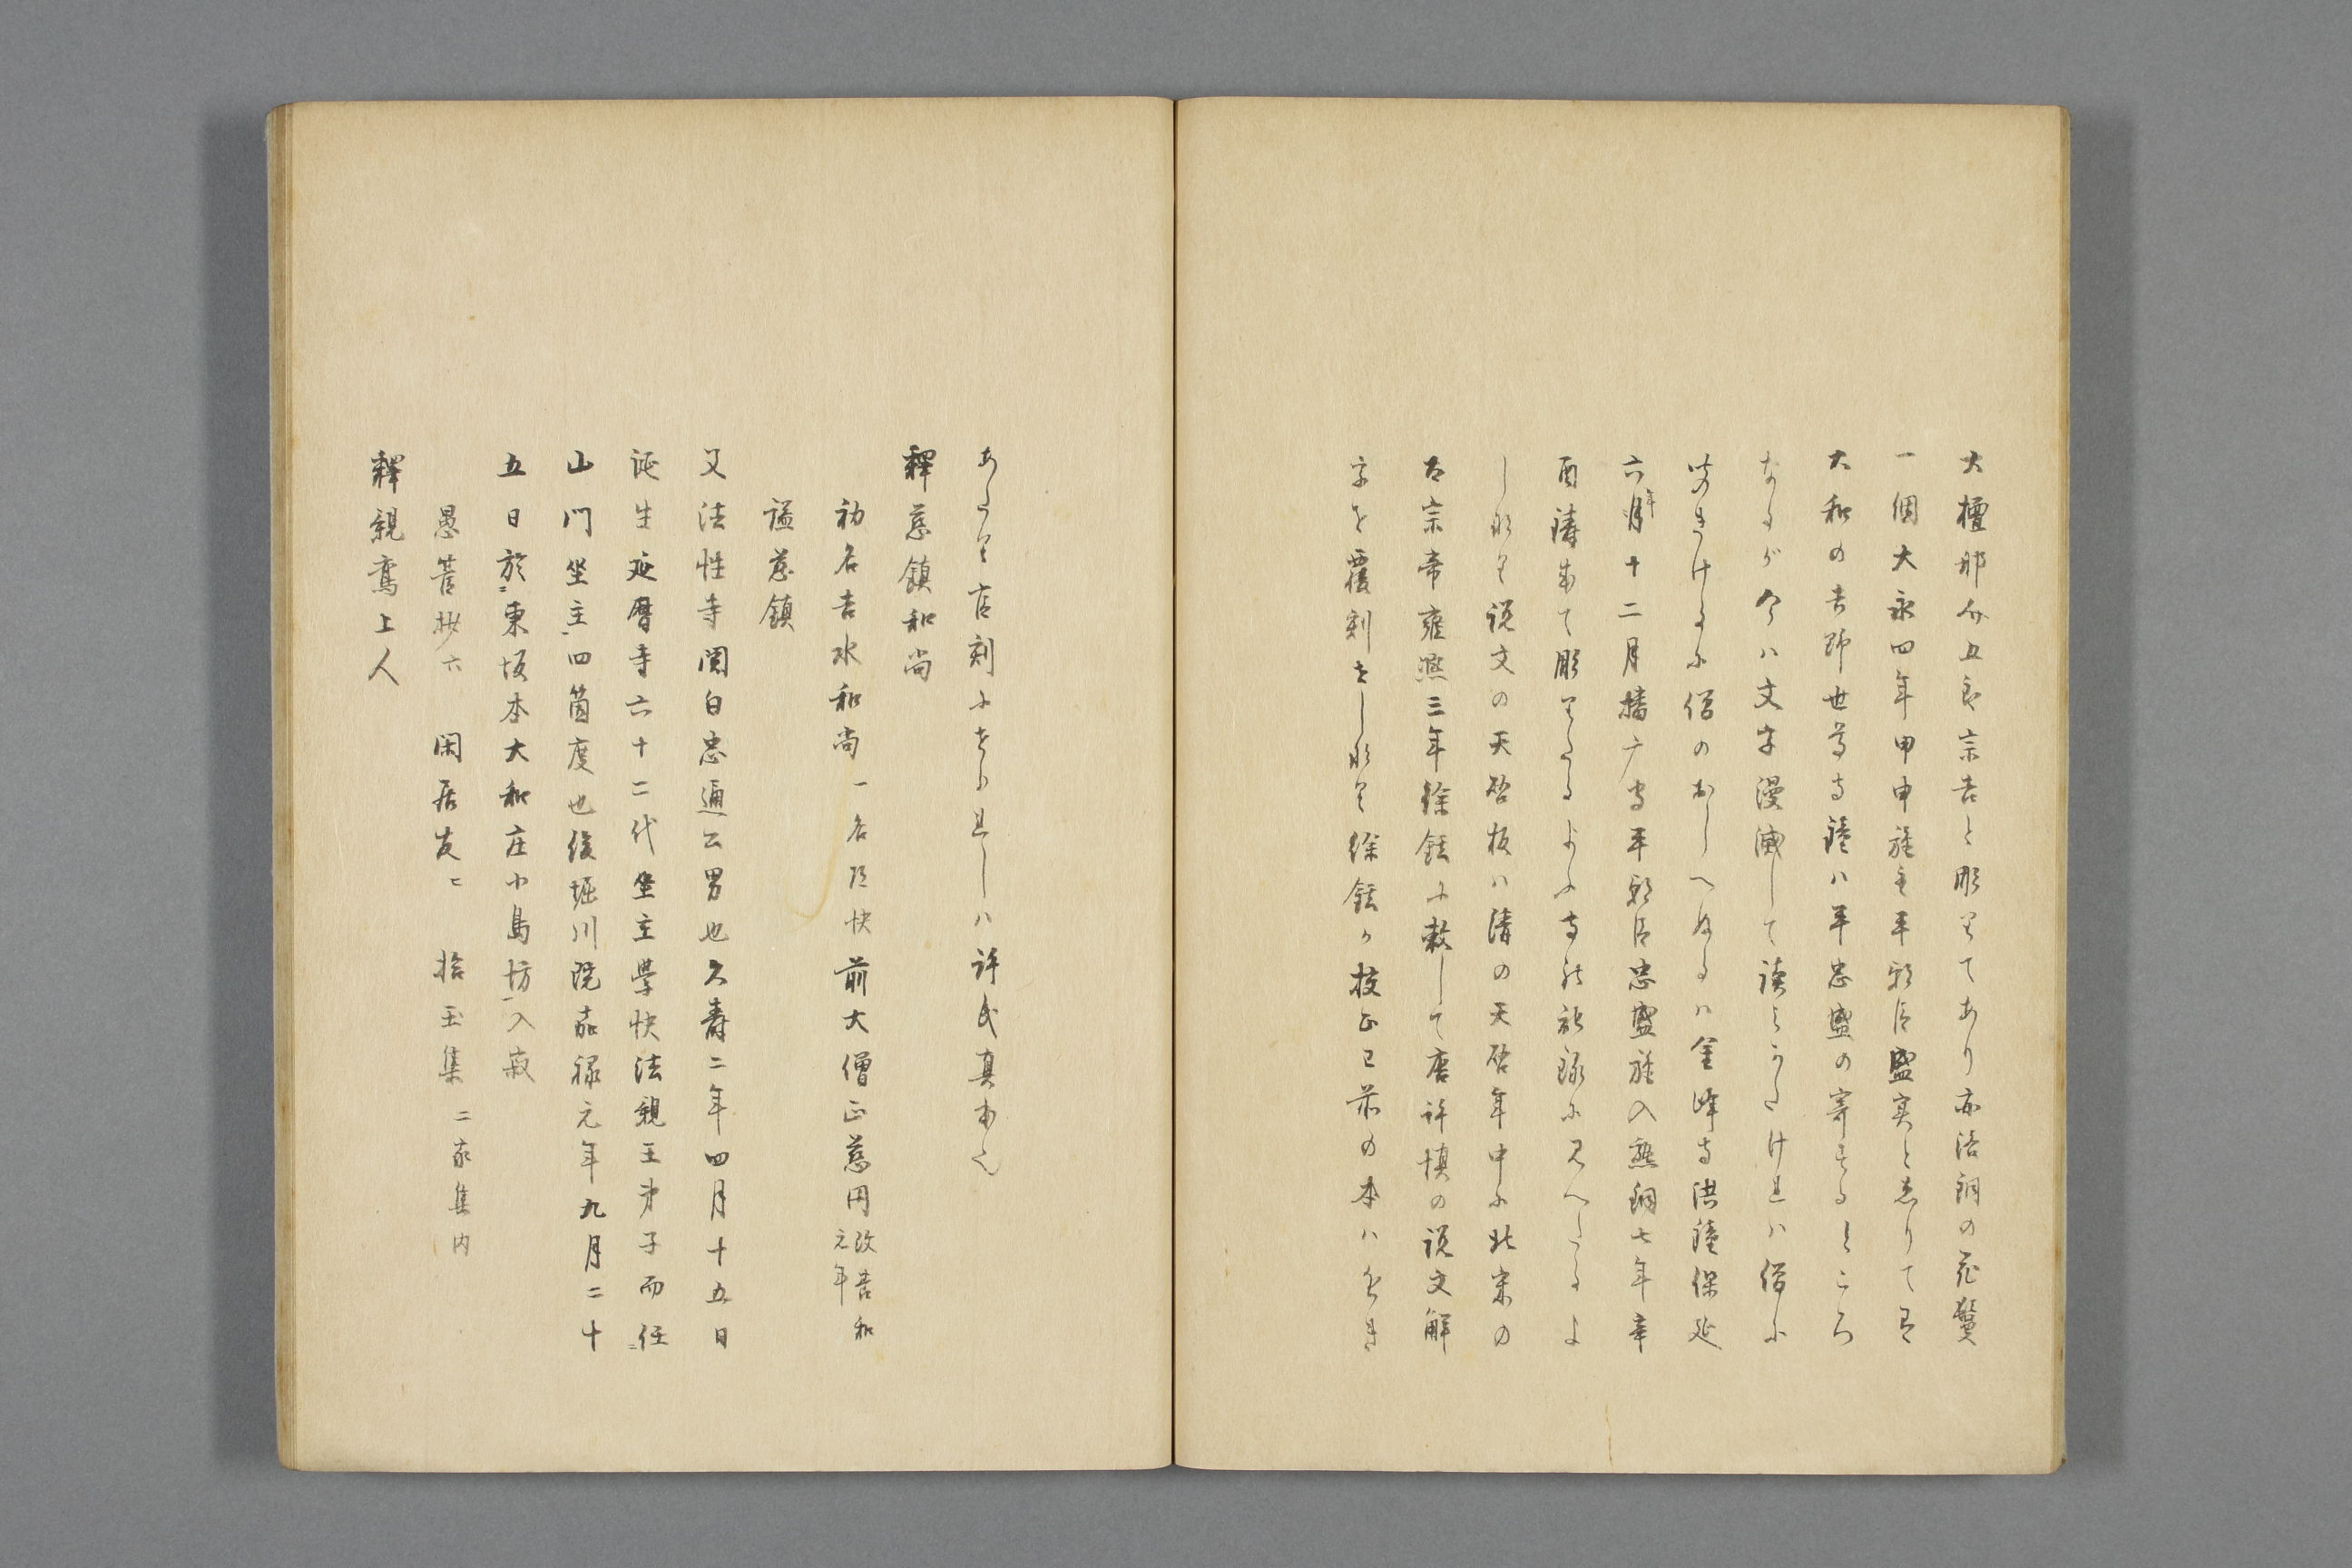 大檀那介五郎宗吉と彫りてあり亦洛銅の花鬘
一個大永四年甲申申施主平朝臣盛実とゑりて
大和の吉野世尊寺鐘ハ平忠盛の寄するところ
なるが今ハ文字漫滅して読えけれハ僧に
きけるに僧のおしへぬるハ金峰寺洪鐘保延
六年月十二月播广守平朝臣忠盛施入熟銅七年辛
酉鋳成て彫りたるよふ寺社禄に見へたるよ
し也説文の天啓板ハ清の天啓年中に北宋の
太宗帝雍熙三年徐鉉に敕して唐許慎の説文解
字を覆刻せし也徐鉉か校正已前の本ハなき
店刻にせられしハ許氏真本也
釋慈鎮和尚
初名吉水和尚 一名 快 前大僧正慈円 改吉和元年
謚慈鎮
父法性寺関白忠通公男也久壽二年四月十五日
誕生延暦寺六十二代坐主學快法親王弟子而任
山門坐主四箇度也後堀川院嘉禄元年九月二十
五日於東坂本大和庄小島坊入寂
愚菅抄六 閑居友二 拾玉集 二家集内
釋親鸞上人